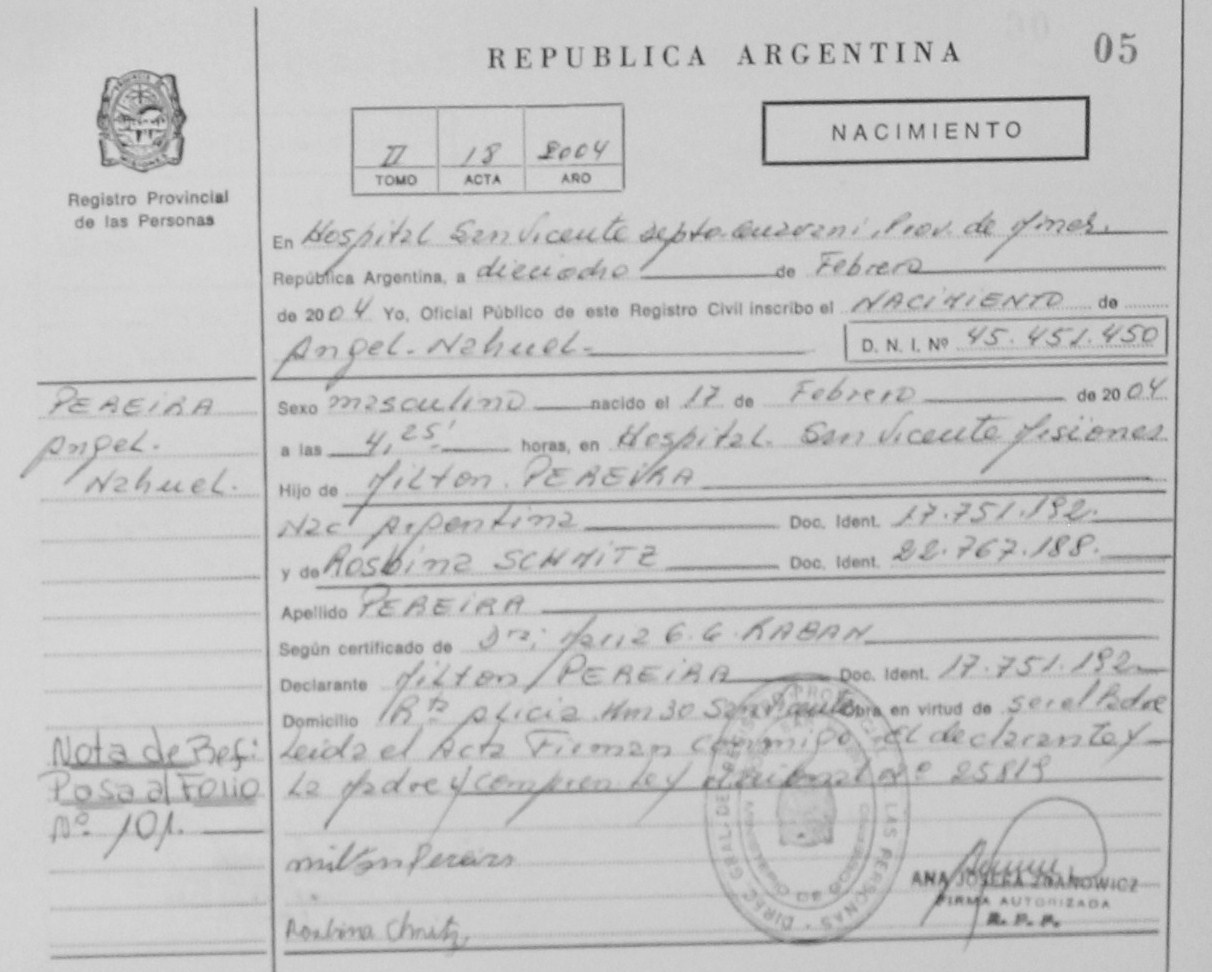 REPUBLICA ARGENTINA
05
NACIMIENTO
II 18 2004
TOMO ACTA AÑO
Registro Provincial
de las Personas
En Hospital San Vicente Depto. Guarani, Prov. de
República Argentina, a dieciocho de Febrero
de 2004 Yo, Oficial Público de este Registro Civil inscribo el NACIMIENTO de
Angel. Nahuel.
D. N. I. Nº 45.451.450
PEREIRA
Angel.
Nahuel.
Sexo masculino nacido el 17 de Febrero de 2004
a las 4,25' horas, en Hospital. San Vicente Misiones
Hijo de Milton. PEREIRA
Nac Argentina Doc. Ident. 17.751.192.
y de Rosbina SCHMITZ Doc. Ident. 22.767.188.
Apellido PEREIRA
Según certificado de Dra: G. G. RABAN
Declarante Milton PEREIRA Doc. Ident. 17.751.192
Domicilio Rta Alicia Km 30 San Vicente Obra en virtud de ser el Padre
Leida el Acta Firman conmigo el declarante y
La Madre y Ley Nº 25819
Nota de Ref:
Pasa al Folio
Nº 101.
Milton
Rosbina
ANA JOSEFA
FIRMA AUTORIZADA
R. P. P.
LAS PERSONAS